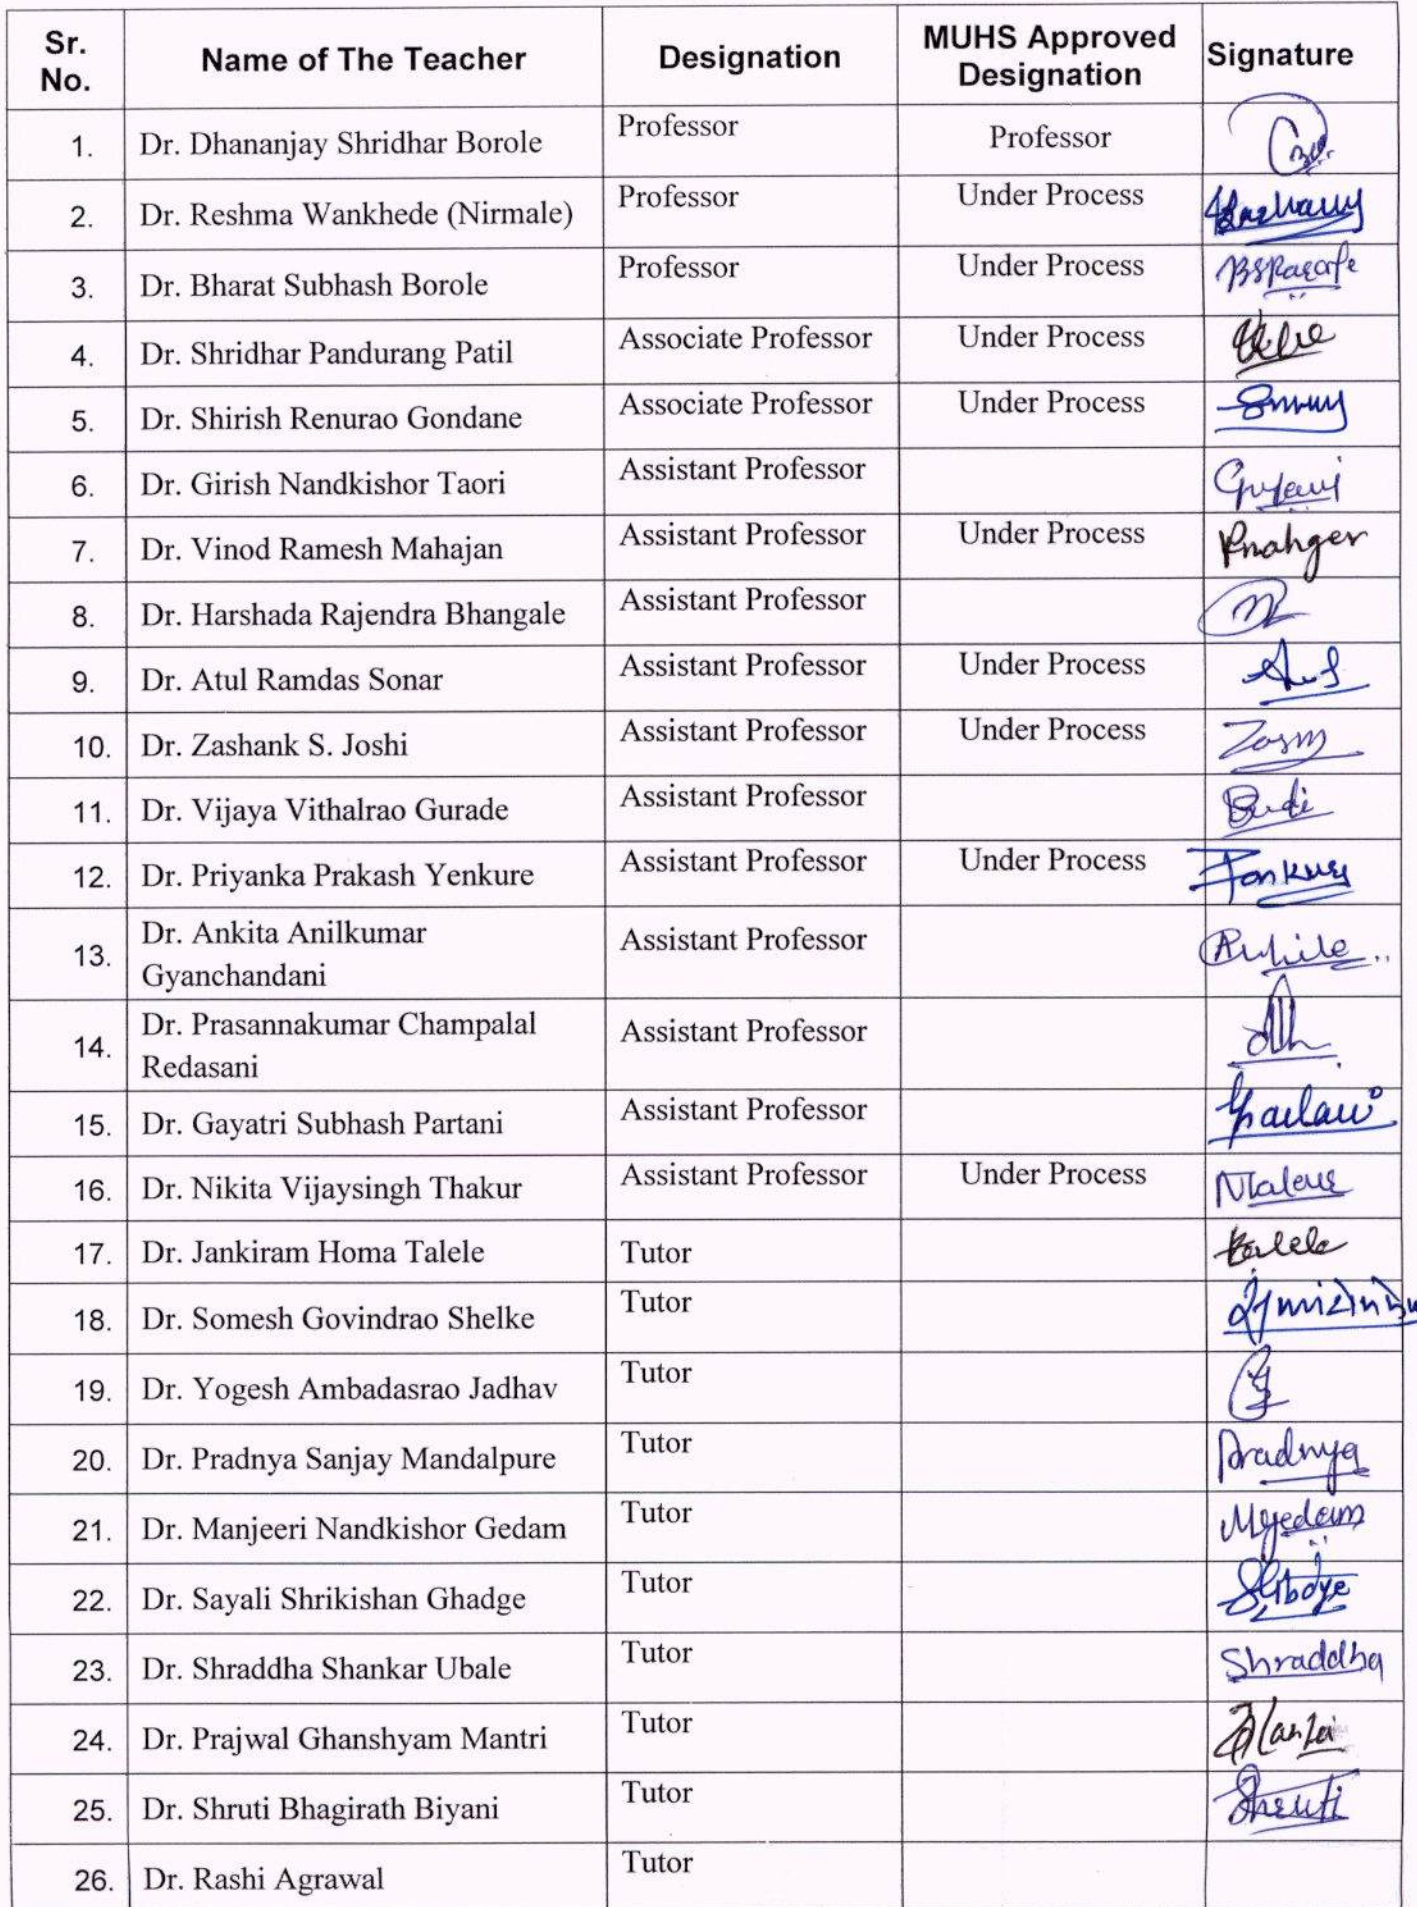 Sr. No. Name of The Teacher Designation MUHS Approved Designation Signature
1. Dr. Dhananjay Shridhar Borole Professor Professor
2. Dr. Reshma Wankhede (Nirmale) Professor Under Process
3. Dr. Bharat Subhash Borole Professor Under Process
4. Dr. Shridhar Pandurang Patil Associate Professor Under Process
5. Dr. Shirish Renurao Gondane Associate Professor Under Process
6. Dr. Girish Nandkishor Taori Assistant Professor
7. Dr. Vinod Ramesh Mahajan Assistant Professor Under Process
8. Dr. Harshada Rajendra Bhangale Assistant Professor
9. Dr. Atul Ramdas Sonar Assistant Professor Under Process
10. Dr. Zashank S. Joshi Assistant Professor Under Process
11. Dr. Vijaya Vithalrao Gurade Assistant Professor
12. Dr. Priyanka Prakash Yenkure Assistant Professor Under Process
13. Dr. Ankita Anilkumar Gyanchandani Assistant Professor
14. Dr. Prasannakumar Champalal Redasani Assistant Professor
15. Dr. Gayatri Subhash Partani Assistant Professor
16. Dr. Nikita Vijaysingh Thakur Assistant Professor Under Process
17. Dr. Jankiram Homa Talele Tutor
18. Dr. Somesh Govindrao Shelke Tutor
19. Dr. Yogesh Ambadasrao Jadhav Tutor
20. Dr. Pradnya Sanjay Mandalpure Tutor Pradnya
21. Dr. Manjeeri Nandkishor Gedam Tutor
22. Dr. Sayali Shrikishan Ghadge Tutor
23. Dr. Shraddha Shankar Ubale Tutor Shraddha
24. Dr. Prajwal Ghanshyam Mantri Tutor
25. Dr. Shruti Bhagirath Biyani Tutor Shruti
26. Dr. Rashi Agrawal Tutor